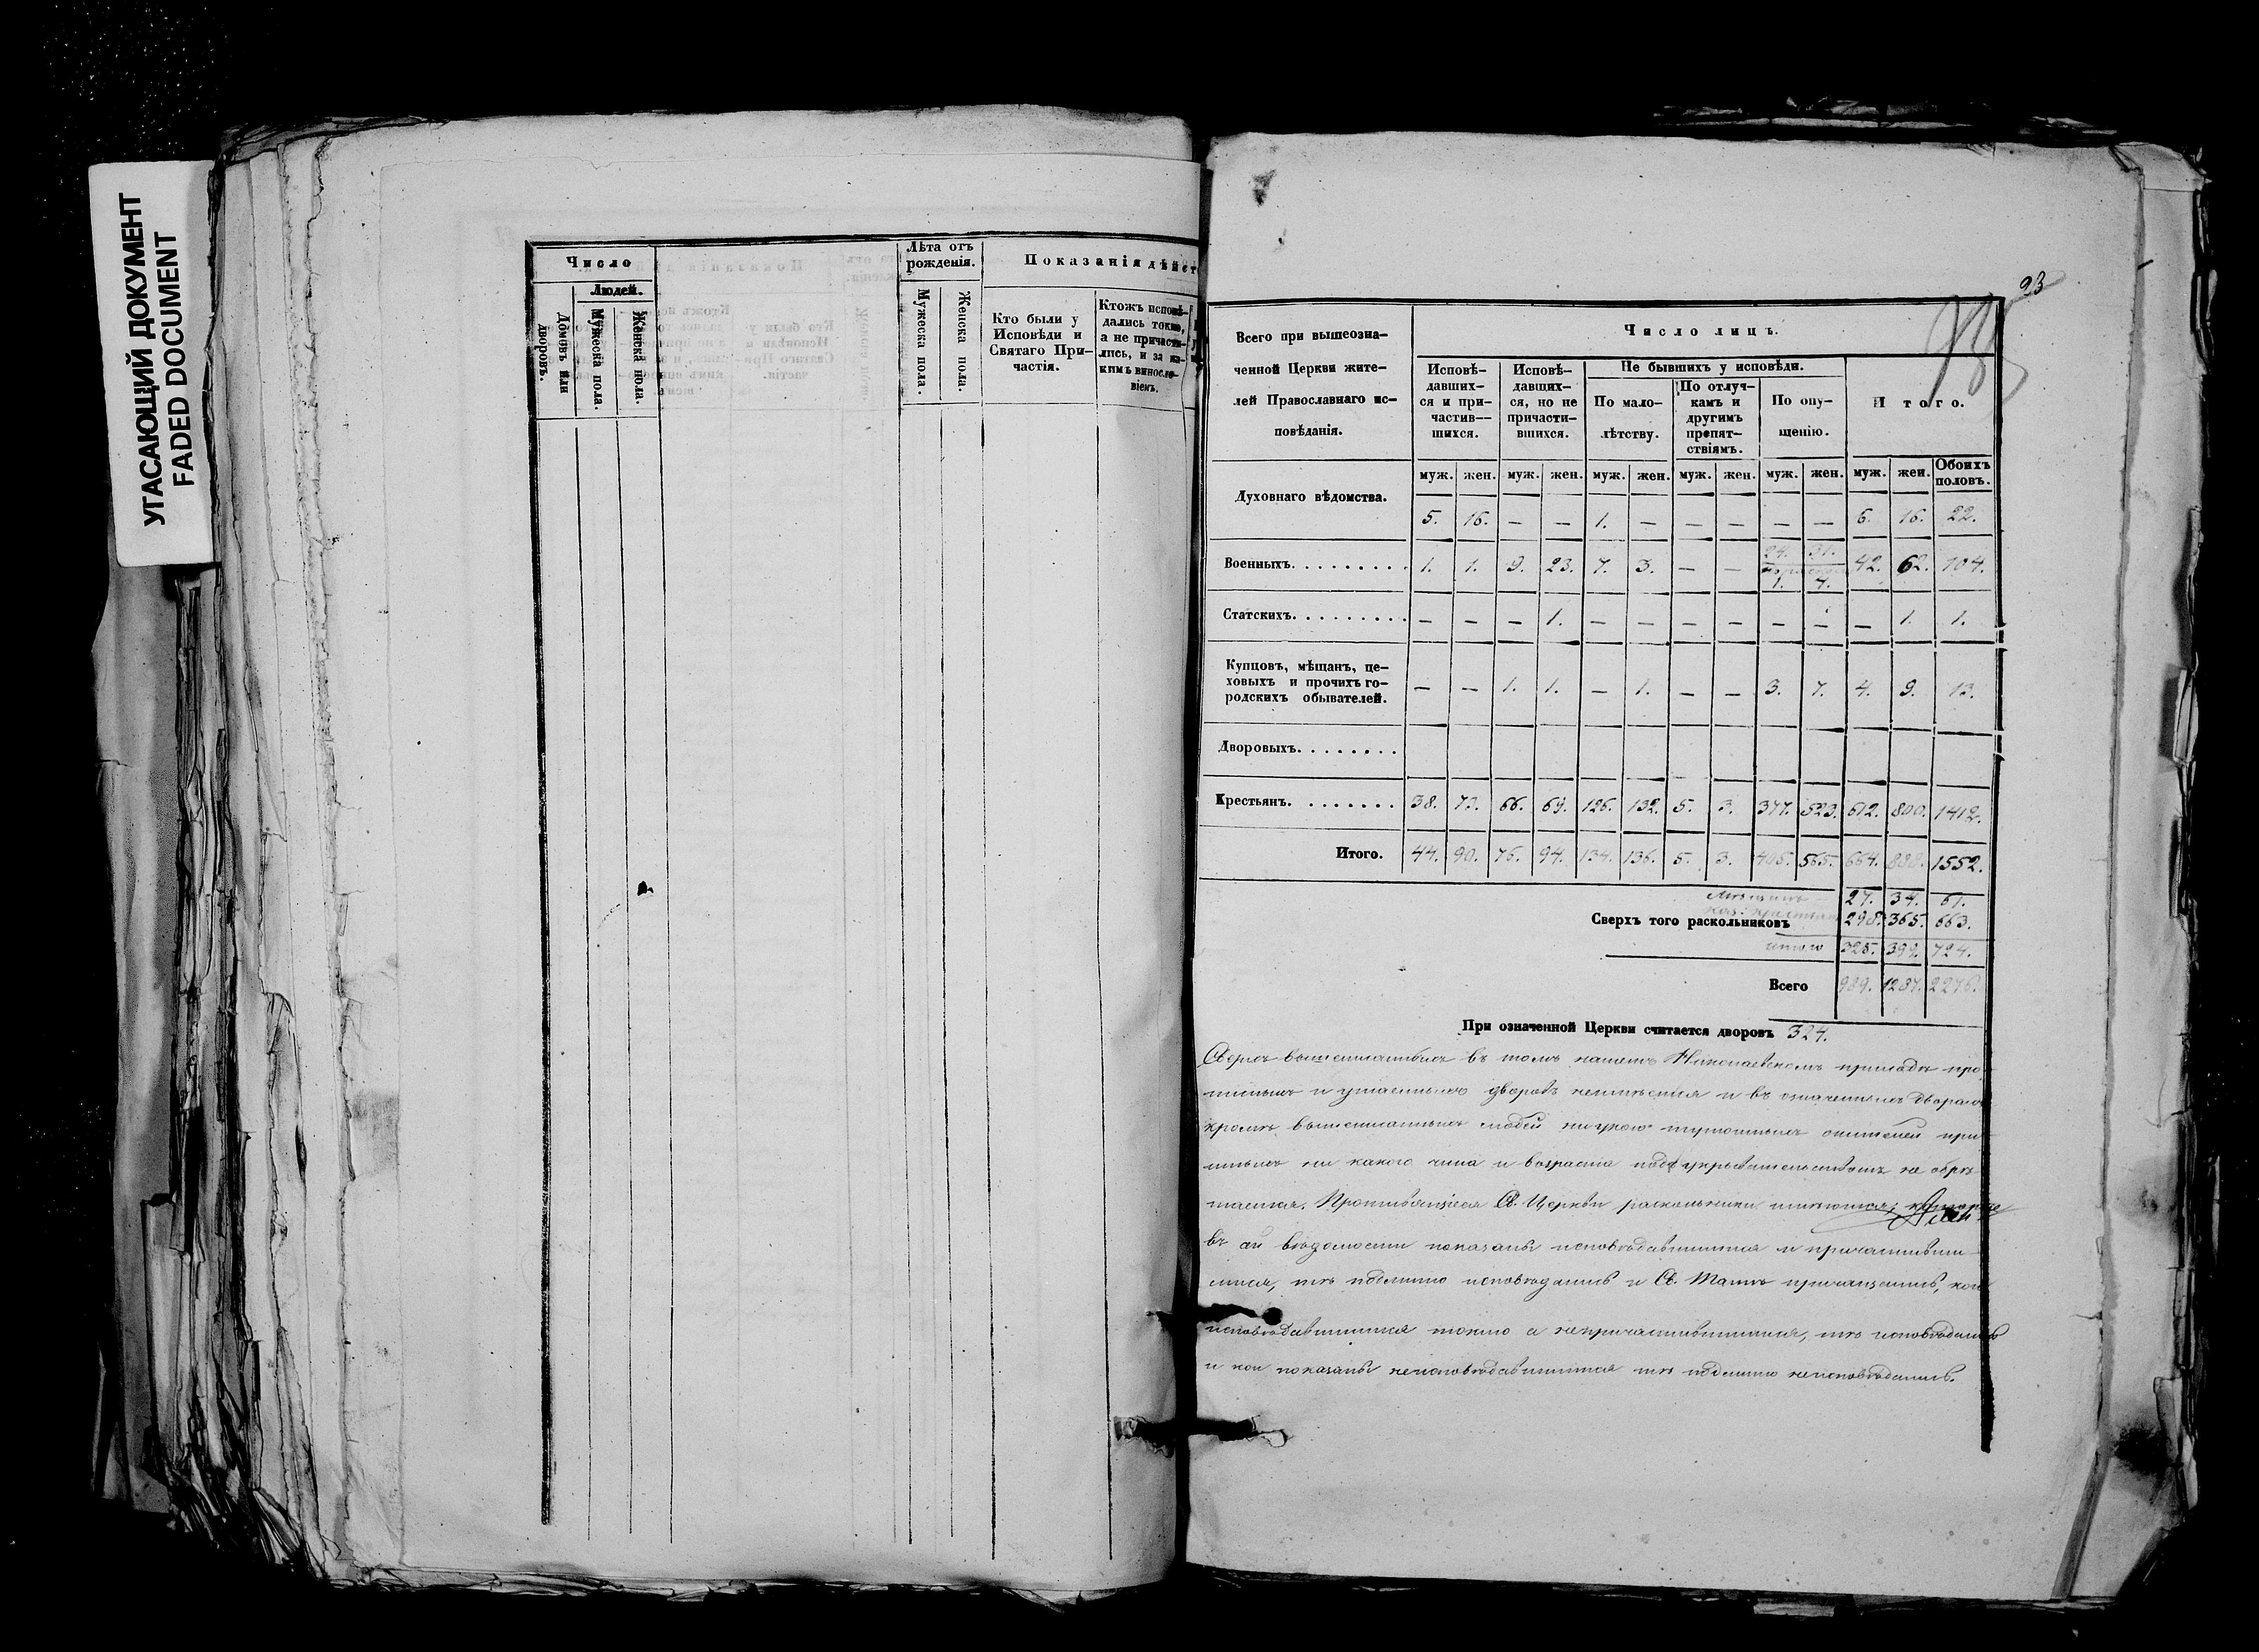 УГАСАЮЩИЙ ДОКУМЕНТ
FADED DOCUMENT
Число
Людей.
Домовъ или дворовъ.
Мужеска пола.
Женска пола.
Лѣта отъ рожденія.
Мужеска пола.
Женска пола.
Показанія дѣйст
Кто были у
Исповѣди и
Святаго При-
частія.
Ктожъ исповѣ-
дались токмо,
а не причасти-
лись, и за ка-
кимъ виносло-
віемъ.
23
Всего при вышеозна-
ченной Церкви жите-
лей Православнаго ис-
повѣданія.
Число лицъ.
Исповѣ-
давших-
ся и при-
частив-
шихся.
Исповѣ-
давших-
ся, но не
причасти-
вшихся.
Не бывшихъ у исповѣди.
По мало-
лѣтству.
По отлуч-
камъ и
другимъ
препят-
ствіямъ.
По опу-
щенію.
Итого.
муж. жен. муж. жен. муж. жен. муж. жен. муж. жен. муж. жен. Обоихъ половъ.
Духовнаго вѣдомства. 5. 16. — — 1. — — — — — 6. 16. 22.
Военныхъ. 1. 1. 9. 23. 7. 3. — — 24. 31. 1. 4. 42. 62. 104.
Статскихъ. — — — 1. — — — — — — — 1. 1.
Купцовъ, мѣщанъ, це-
ховыхъ и прочихъ го-
родскихъ обывателей. — — 1. 1. — 1. — — 3. 7. 4. 9. 13.
Дворовыхъ.
Крестьянъ. 38. 72. 66. 69. 126. 132. 5. 3. 377. 523. 612. 800. 1412.
Итого. 44. 90. 76. 94. 134. 136. 5. 3. 405. 565. 664. 888. 1552.
27. 34. 61.
Сверхъ того раскольниковъ 298. 365. 663.
итого 325. 399. 724.
Всего 989. 1287. 2276.
При означенной Церкви считается дворовъ 324.
Сверхъ вышеписанныхъ въ томъ нашемъ Николаевскомъ приходѣ про-
писныхъ и утаенныхъ дворовъ неимѣется и въ означенныхъ дворахъ
кромѣ вышеписанныхъ людей оныхъ
ни какого чина и возраста не обрѣ-
тается. Противящіеся Св. Церкви раскольники имѣются;
въ сей вѣдомости показаны исповѣдавшимися и причастивши-
мися, тѣ подлинно исповѣдались и Св. Таинъ причащались, кои
исповѣдавшимися токмо а непричастившимися, тѣ исповѣдались
и кои показаны неисповѣдавшимися тѣ подлинно неисповѣдались.